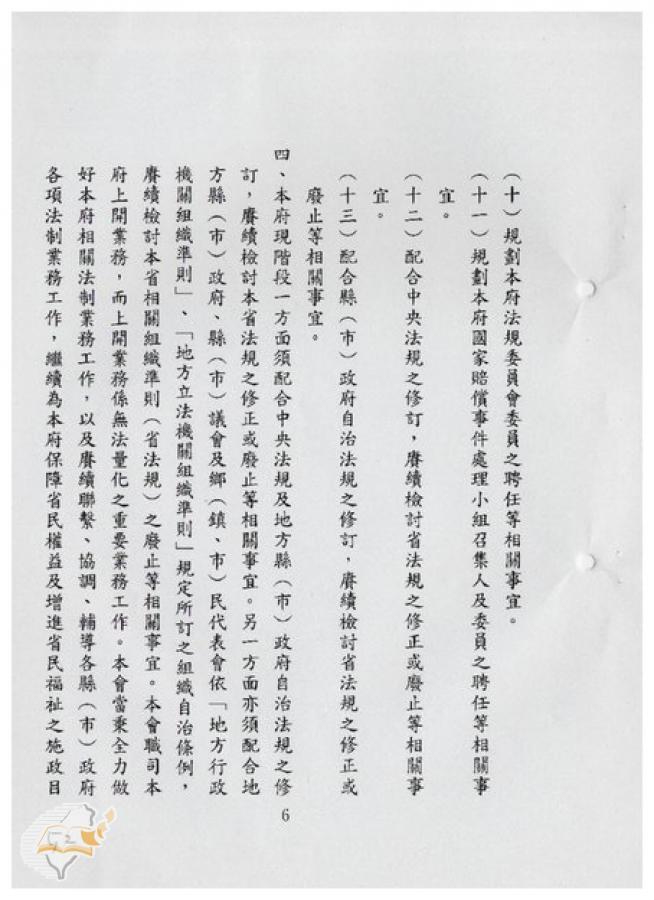 （十）規劃本府法規委員會委員之聘任等相關事宜。
（十一）規劃本府國家賠償事件處理小組召集人及委員之聘任等相關事
宜。
（十二）配合中央法規之修訂，賡續檢討省法規之修正或廢止等相關事
宜。
（十三）配合縣（市）政府自治法規之修訂，賡續檢討省法規之修正或
廢止等相關事宜。
四、本府現階段一方面須配合中央法規及地方縣（市）政府自治法規之修
訂，賡續檢討本省法規之修正或廢止等相關事宜。另一方面亦須配合地
方縣（市）政府、縣（市）議會及鄉（鎮、市）民代表會依「地方行政
機關組織準則」、「地方立法機關組織準則」規定所訂之組織自治條例，
賡續檢討本省相關組織準則（省法規）之廢止等相關事宜。本會職司本
府上開業務，而上開業務係無法量化之重要業務工作。本會當秉全力做
好本府相關法制業務工作，以及賡續聯繫、協調、輔導各縣（市）政府
各項法制業務工作，繼續為本府保障省民權益及增進省民福祉之施政目
6